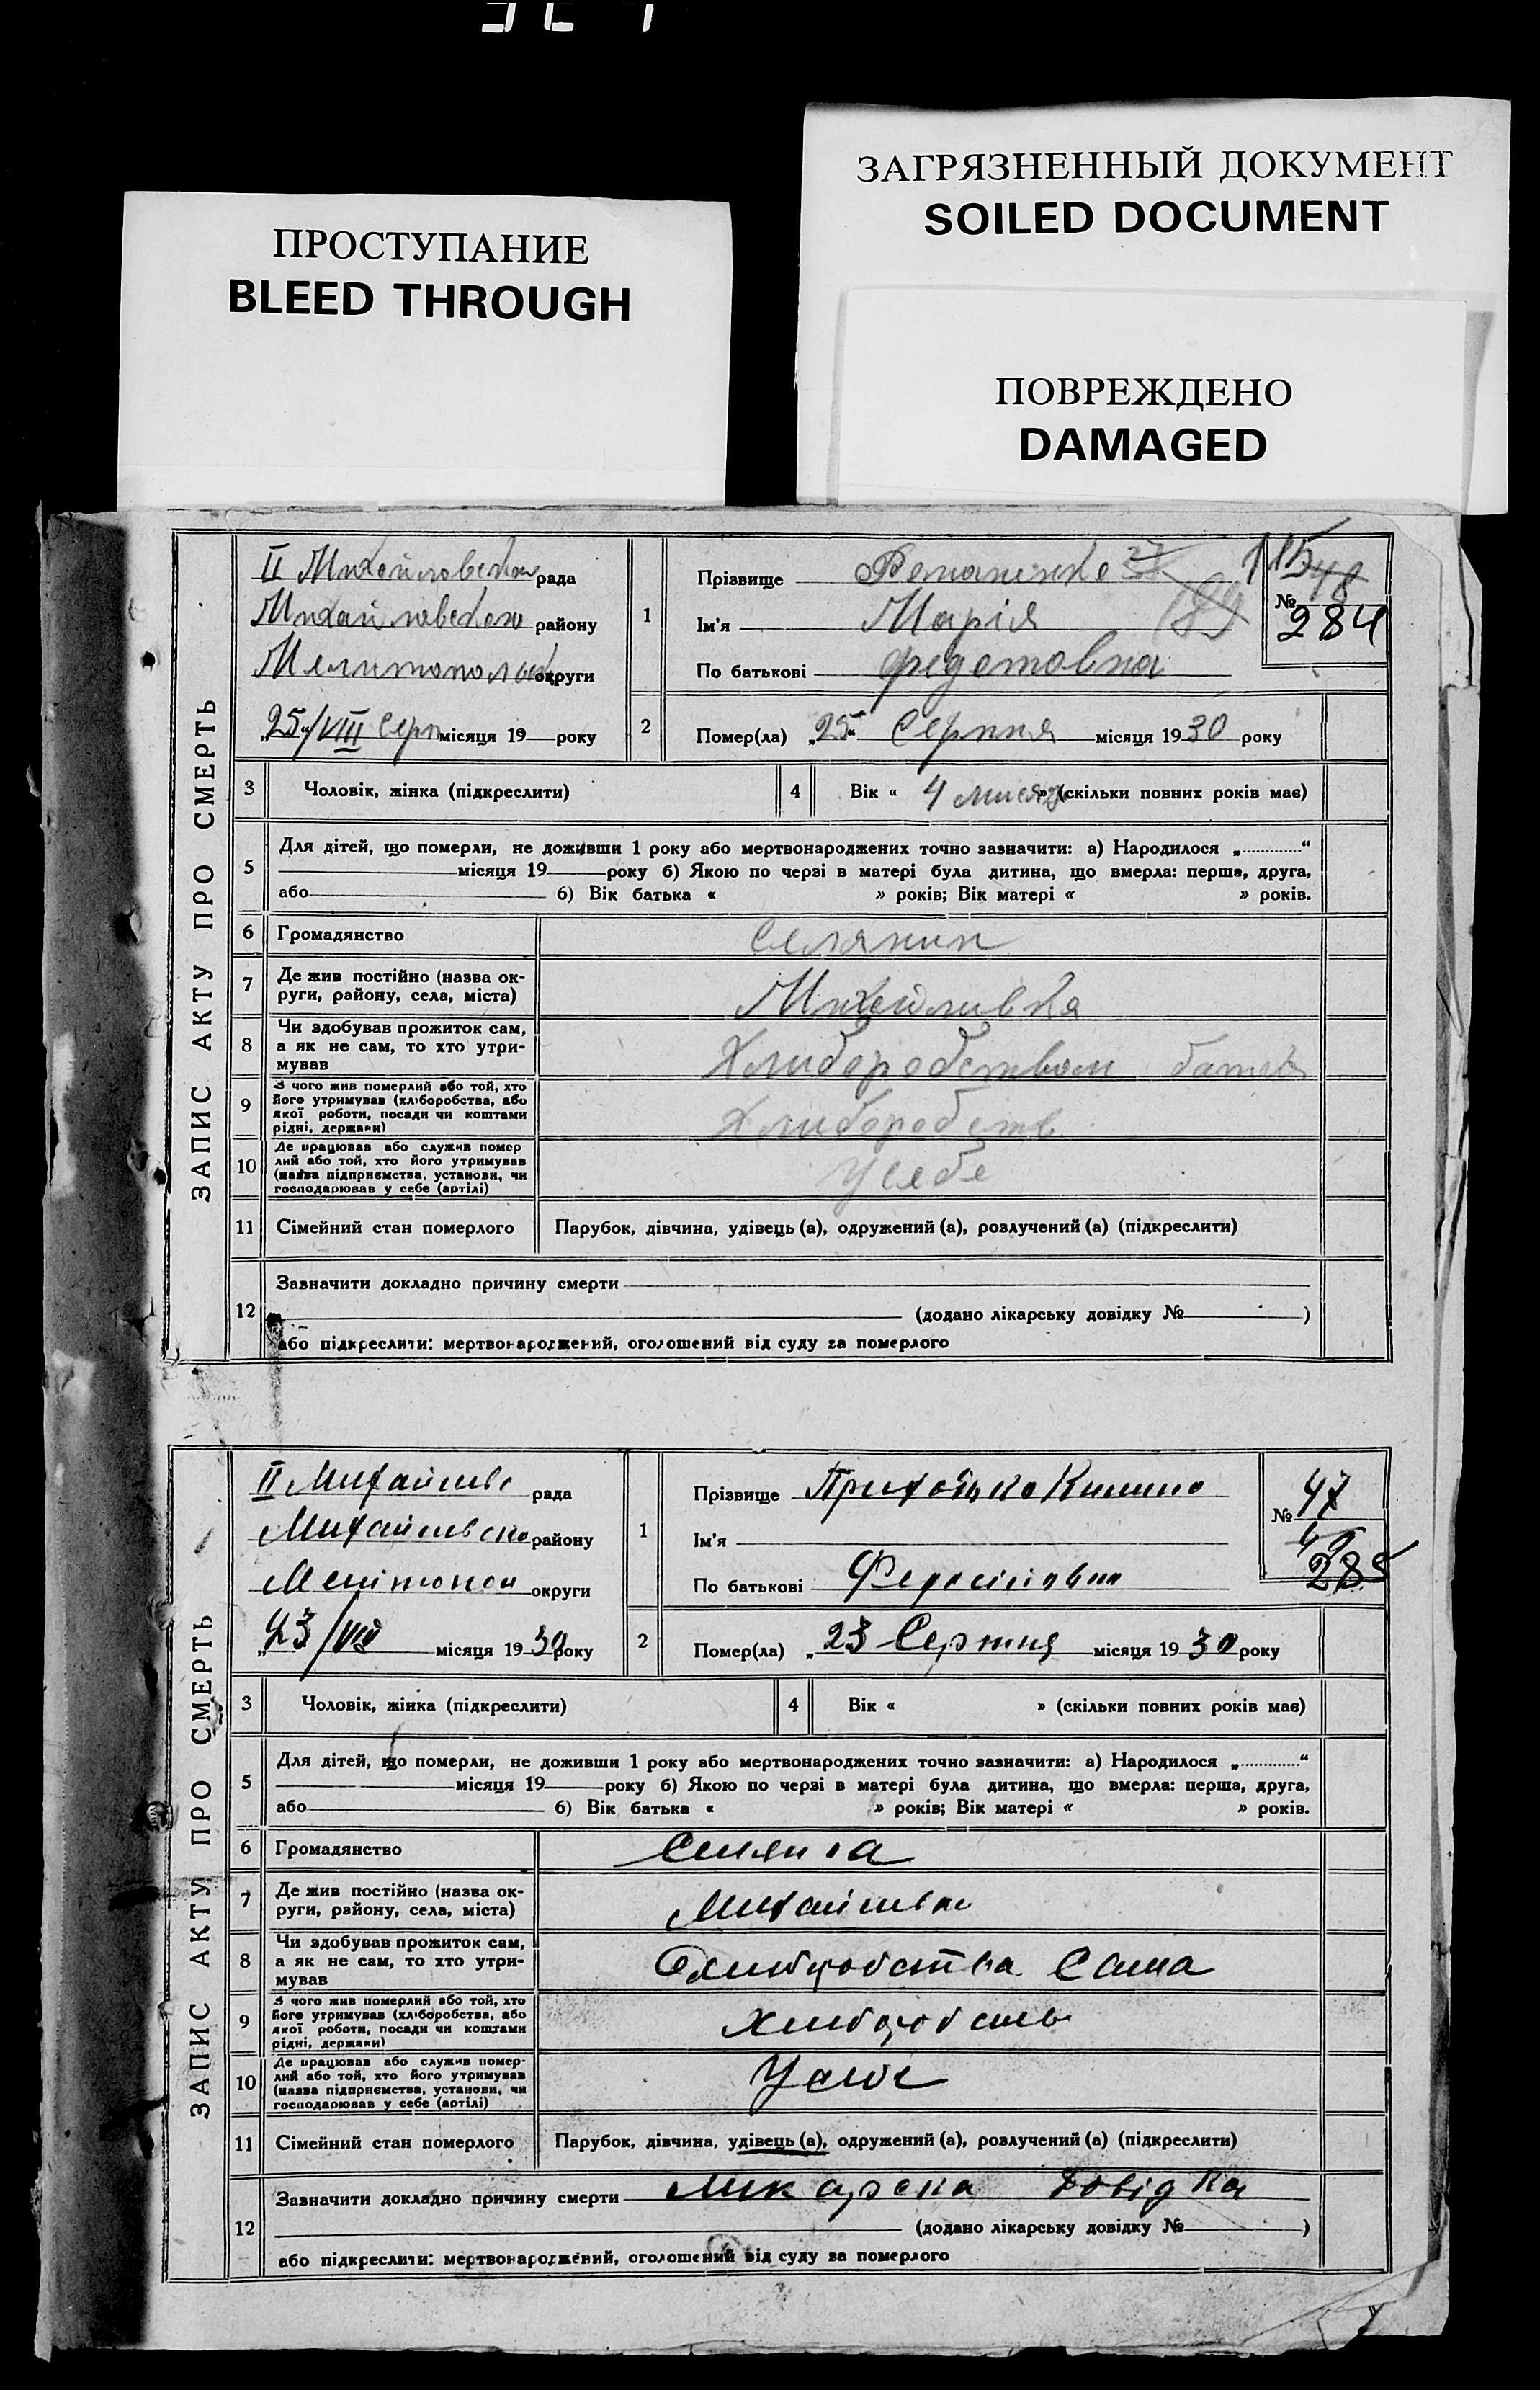 ЗАГРЯЗНЕННЫЙ ДОКУМЕНТ
SOILED DOCUMENT
ПРОСТУПАНИЕ
BLEED THROUGH
ПОВРЕЖДЕНО
DAMAGED
ЗАПИС АКТУ ПРО СМЕРТЬ
II Михайловська рада
Михайловского району
Мелитопольск округи
„25“/VIII Серп місяця 19 року
1
Прізвище Романенко
Ім'я Марія
По батькові Федотовна
115
48
№ 284
189
2 Помер(ла) „25“ Серпня місяця 1930 року
3 Чоловік, жінка (підкреслити)
4 Вік « 4 мисяц » (скільки повних років має)
5 Для дітей, що померли, не доживши 1 року або мертвонароджених точно зазначити: а) Народилося „ “
місяця 19 року б) Якою по черзі в матері була дитина, що вмерла: перша, друга,
або б) Вік батька « » років; Вік матері « » років.
6 Громадянство Селянин
7 Де жив постійно (назва ок-
руги, району, села, міста) Михайливка
8 Чи здобував прожиток сам,
а як не сам, то хто утри-
мував Хлиборобством батька
9 З чого жив померлий або той, хто
його утримував (хліборобства, або
якої роботи, посади чи коштами
рідні, держави) Хлибороств
10 Де працював або служив помер
лий або той, хто його утримував
(назва підприємства, установи, чи
господарював у себе (артілі) У себе
11 Сімейний стан померлого Парубок, дівчина, удівець (а), одружений (а), розлучений (а) (підкреслити)
12 Зазначити докладно причину смерти
(додано лікарську довідку № )
або підкреслити: мертвонароджений, оголошений від суду за померлого
ЗАПИС АКТУ ПРО СМЕРТЬ
II Михайливс рада
Михайливско району
Мелітопол округи
„23/VIII місяця 1930 року
1
Прізвище Приходько
Ім'я
По батькові
№ 47
285
2 Помер(ла) „23 Серпня місяця 1930 року
3 Чоловік, жінка (підкреслити)
4 Вік « » (скільки повних років має)
5 Для дітей, що померли, не доживши 1 року або мертвонароджених точно зазначити: а) Народилося „ “
місяця 19 року б) Якою по черзі в матері була дитина, що вмерла: перша, друга,
або б) Вік батька « » років; Вік матері « » років.
6 Громадянство Селянка
7 Де жив постійно (назва ок-
руги, району, села, міста) Михайливка
8 Чи здобував прожиток сам,
а як не сам, то хто утри-
мував Хлиборобства Сама
9 З чого жив померлий або той, хто
його утримував (хліборобства, або
якої роботи, посади чи коштами
рідні, держави) Хлиборобств
10 Де працював або служив помер-
лий або той, хто його утримував
(назва підприємства, установи, чи
господарював у себе (артілі) У себе
11 Сімейний стан померлого Парубок, дівчина, удівець (а), одружений (а), розлучений (а) (підкреслити)
12 Зазначити докладно причину смерти Ликарска довідка
(додано лікарську довідку № )
або підкреслити: мертвонароджений, оголошений від суду за померлого